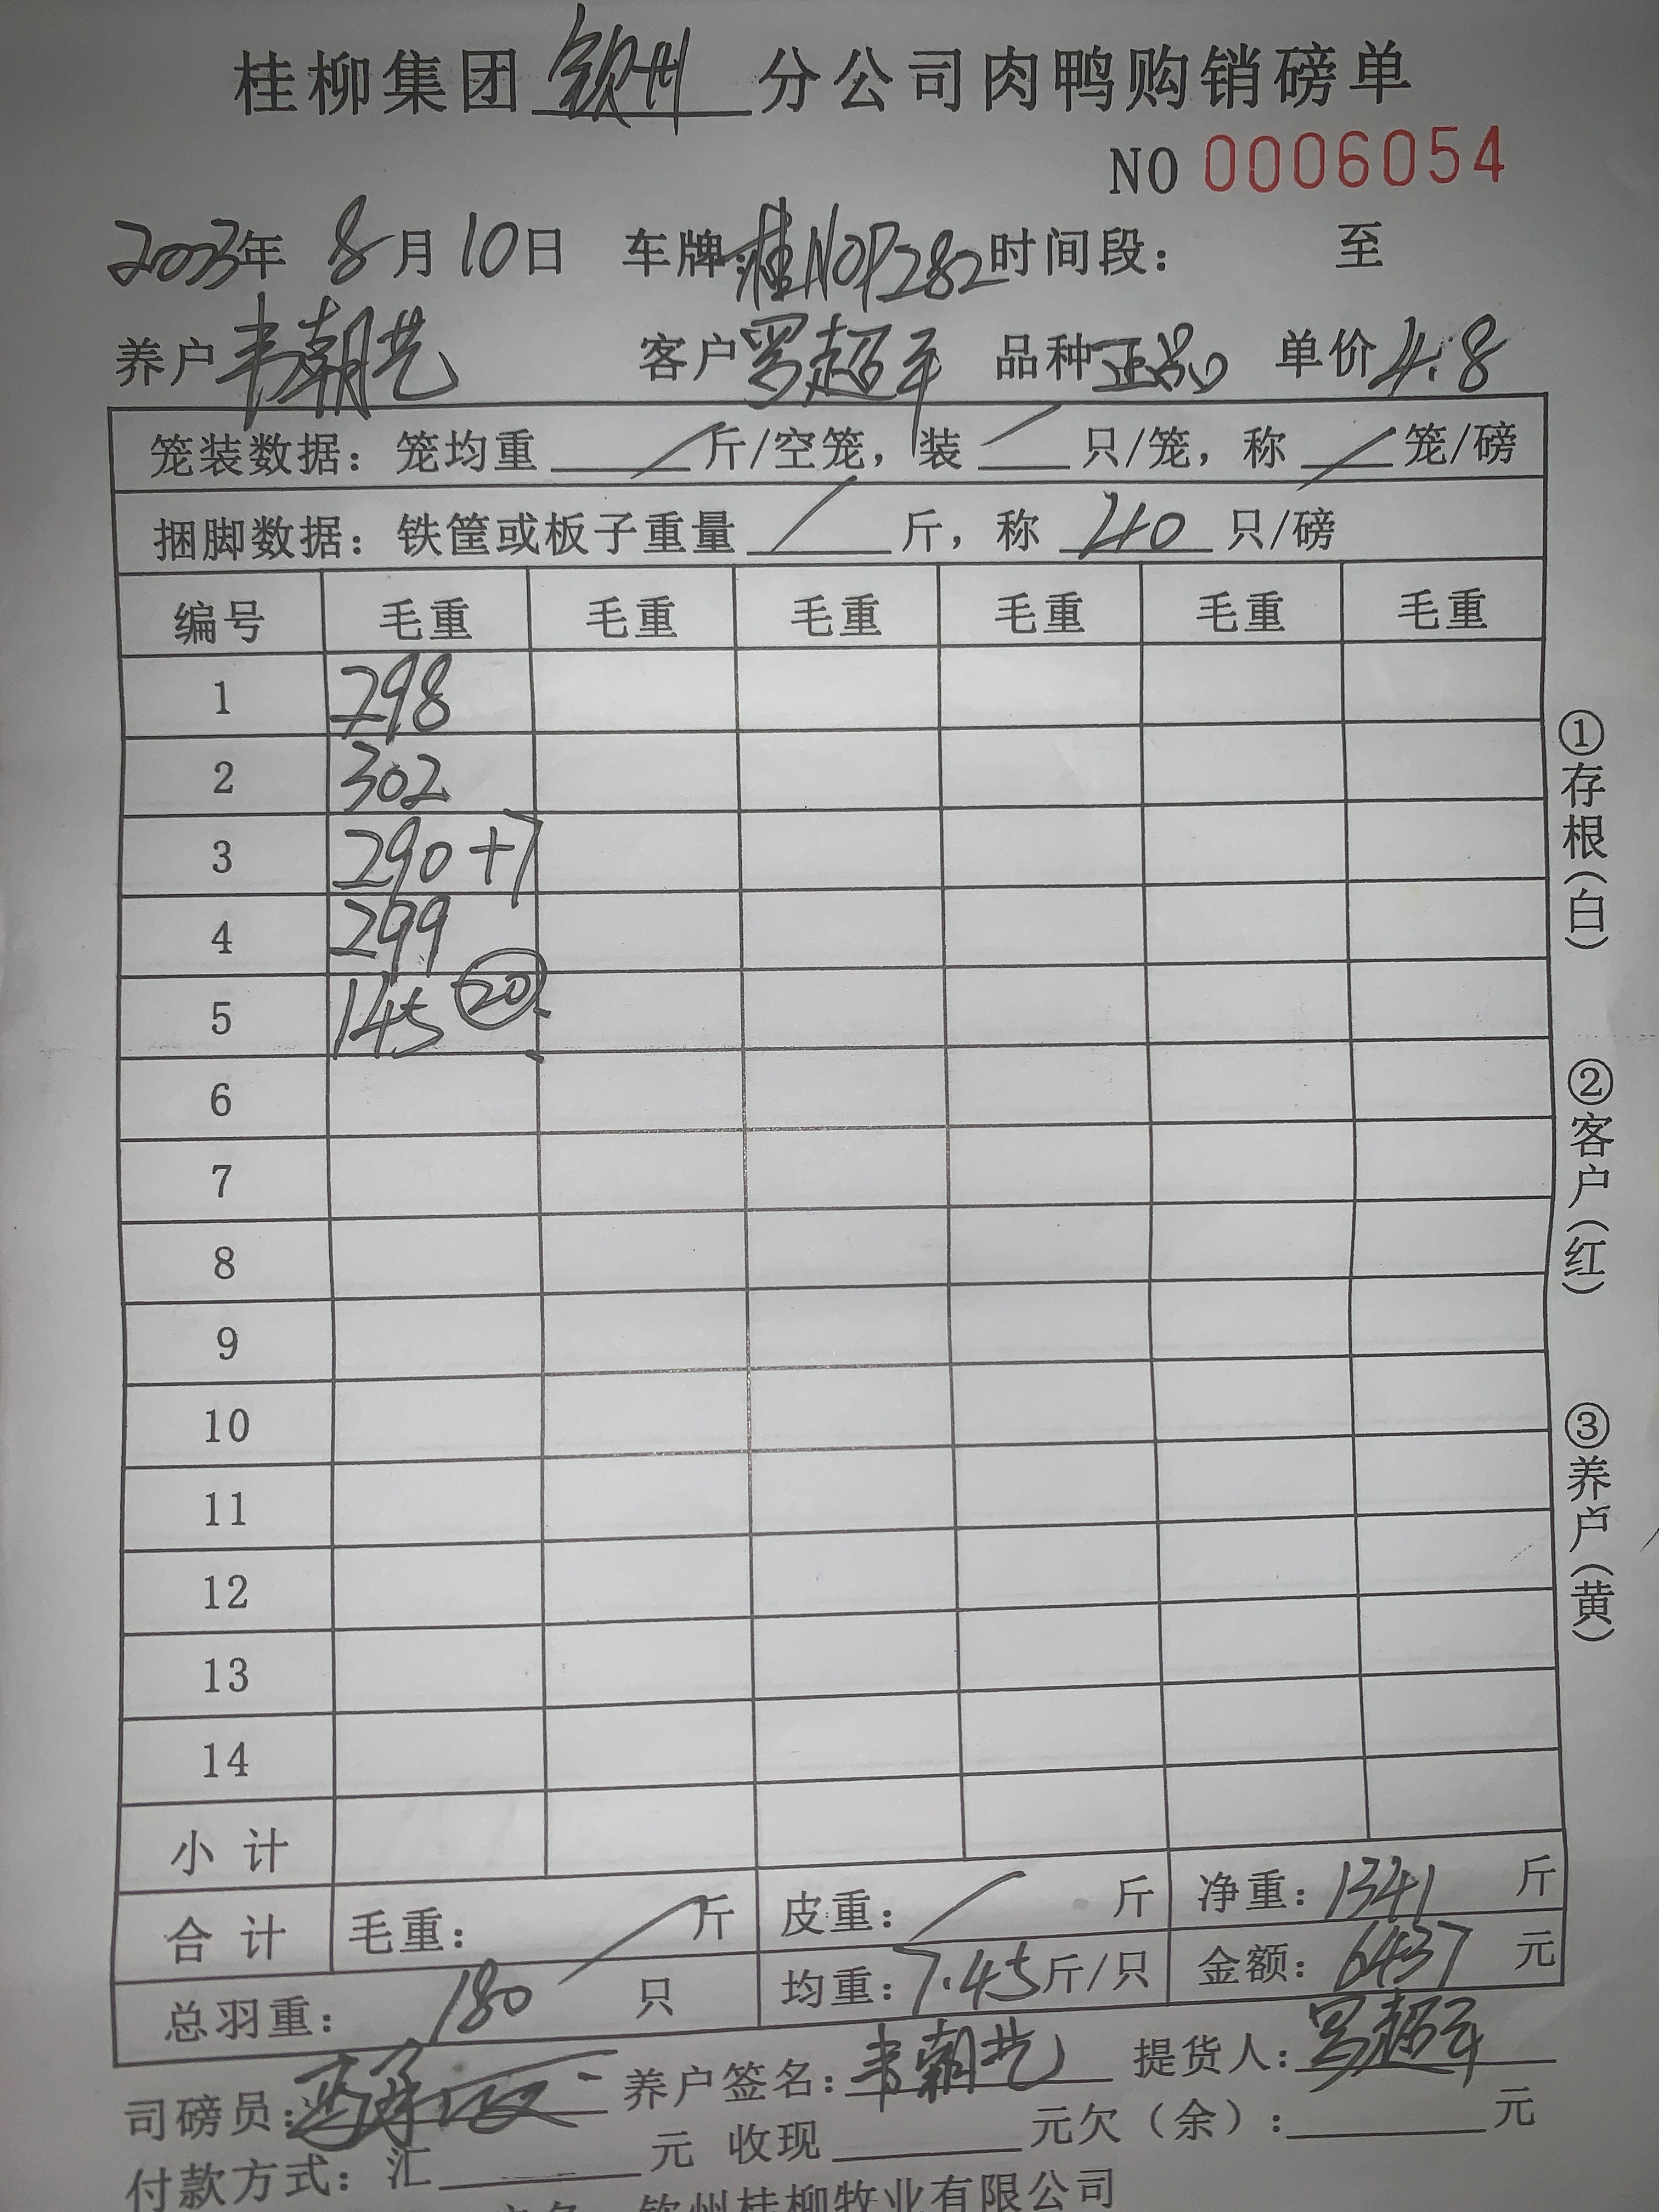 桂柳集团 钦州 分公司肉鸭购销磅单
NO 0006054
2003年 8月10日 车牌:桂NOP282 时间段: 至
养户 韦朝艺 客户 罗超平 品种 正品 单价 4.8
笼装数据:笼均重 / 斤/空笼,装 / 只/笼,称 / 笼/磅
捆脚数据:铁筐或板子重量 / 斤,称 40 只/磅
编号 毛重 毛重 毛重 毛重 毛重 毛重
1 298
2 302
3 290+7
4 299
5 145 ⑳
6
7
8
9
10
11
12
13
14
小计
合计 毛重: / 斤 皮重: / 斤 净重:1341 斤
总羽重: 180 只 均重:7.45斤/只 金额:6437 元
司磅员: 养户签名:韦朝艺 提货人:罗超平
付款方式:汇 元 收现 元欠(余): 元
钦州桂柳牧业有限公司
①存根(白)
②客户(红)
③养户(黄)